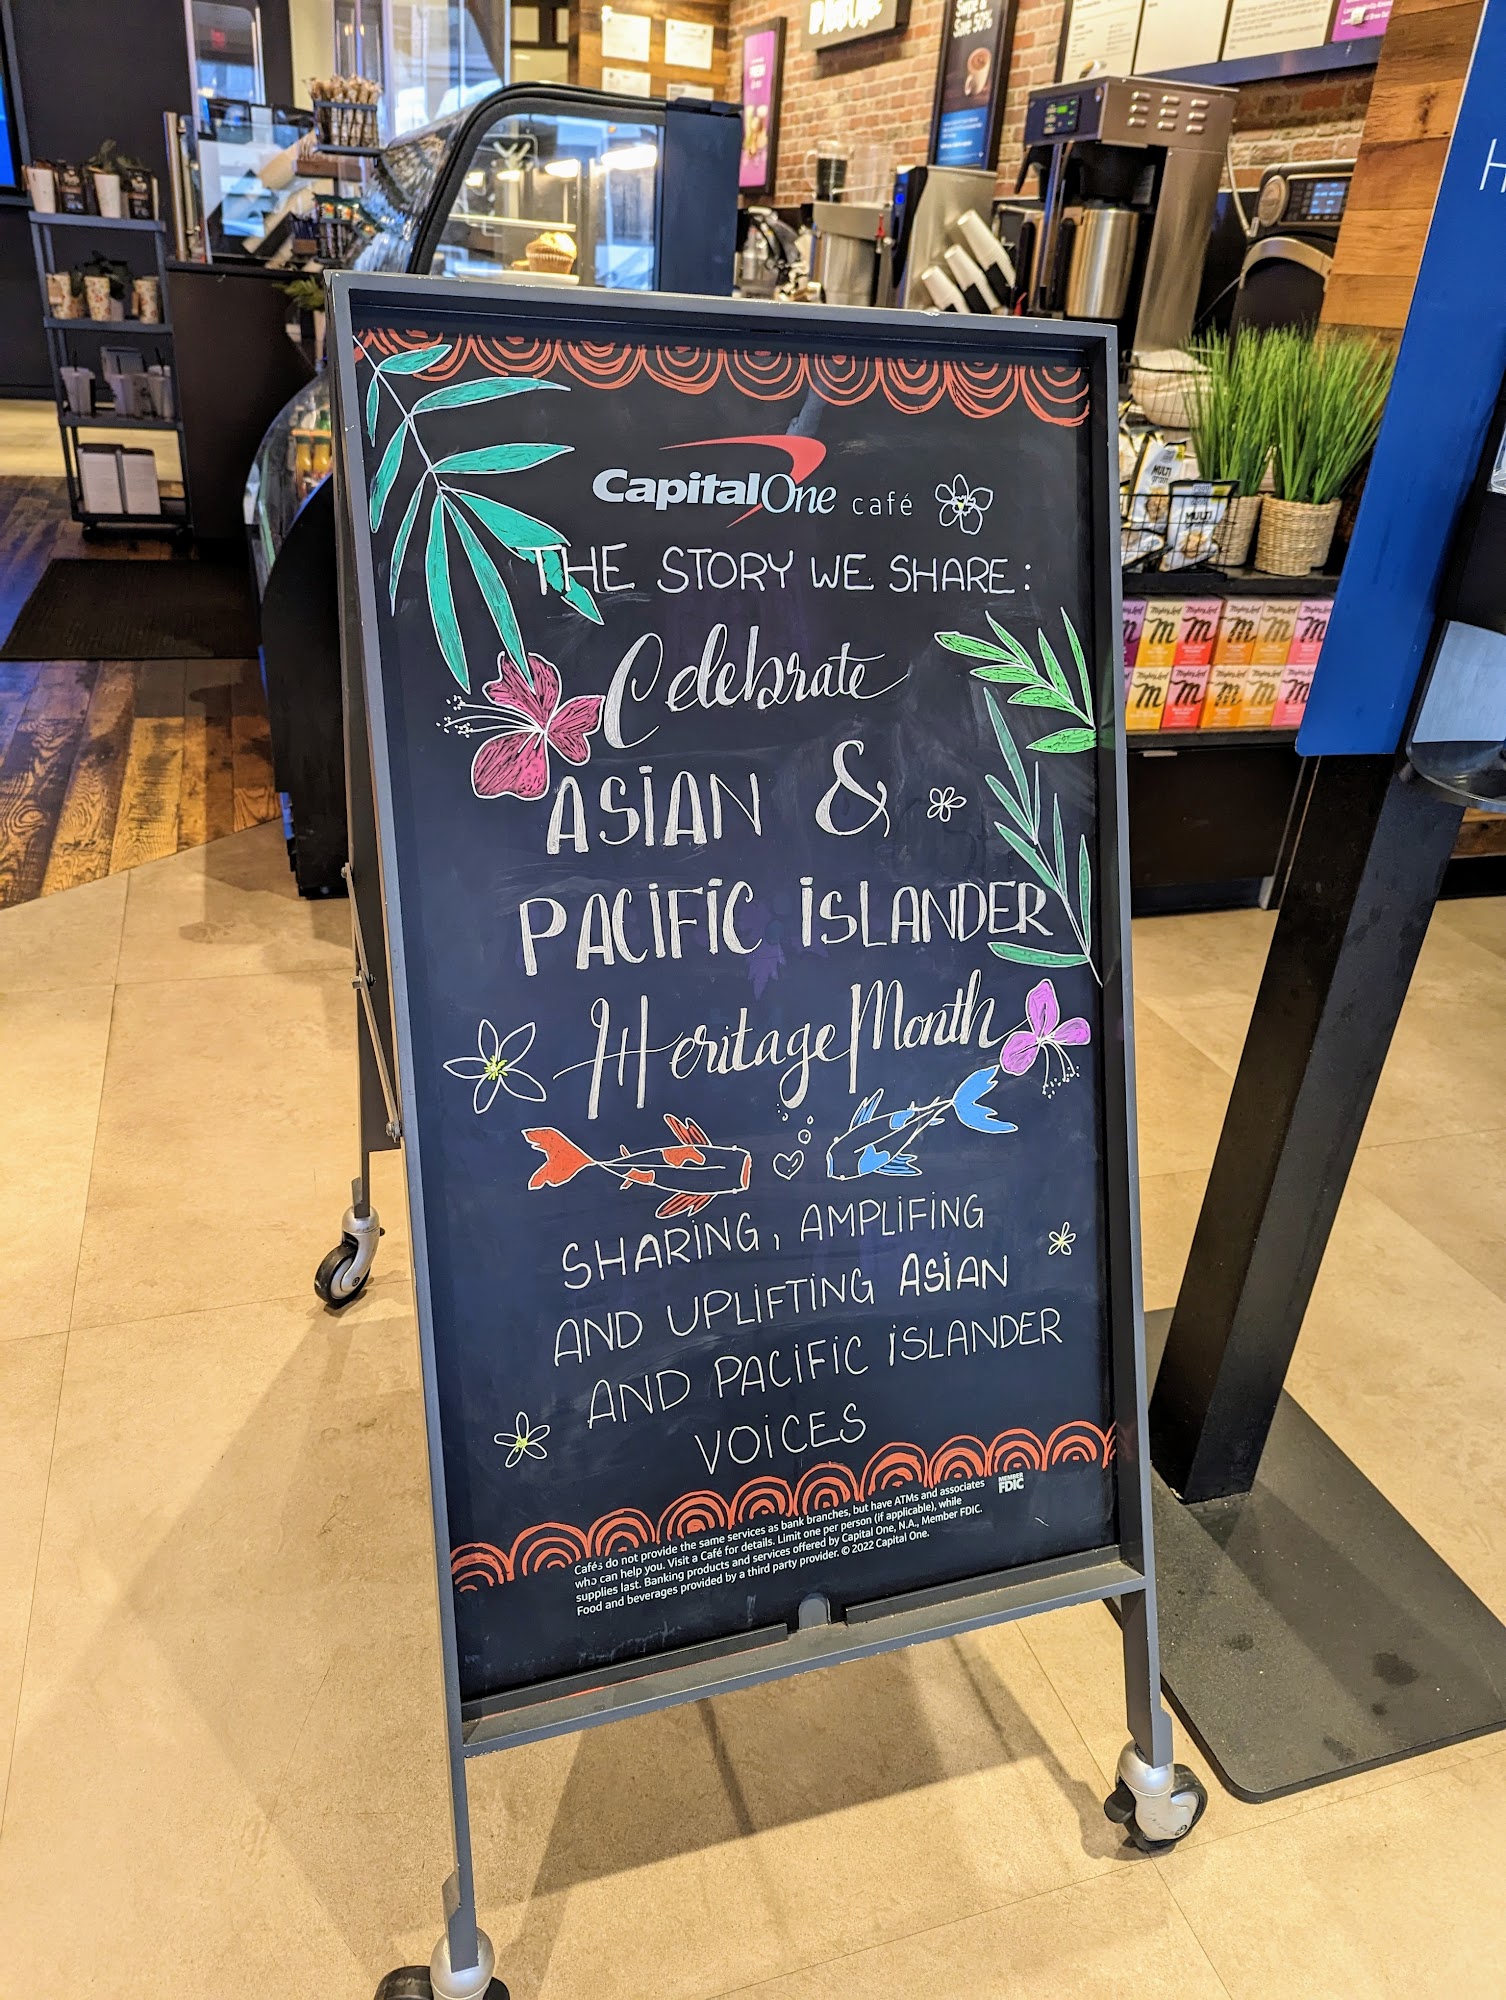 Save 50%
CapitalOne café
THE STORY WE SHARE:
Celebrate
ASIAN &
PACIFIC ISLANDER
Heritage Month
SHARING, AMPLIFING
AND UPLIFTING ASIAN
AND PACIFIC ISLANDER
VOICES
MEMBER
FDIC
Cafés do not provide the same services as bank branches, but have ATMs and associates
who can help you. Visit a Café for details. Limit one per person (if applicable), while
supplies last. Banking products and services offered by Capital One, N.A., Member FDIC.
Food and beverages provided by a third party provider. © 2022 Capital One.
MULTI
MULTI
H